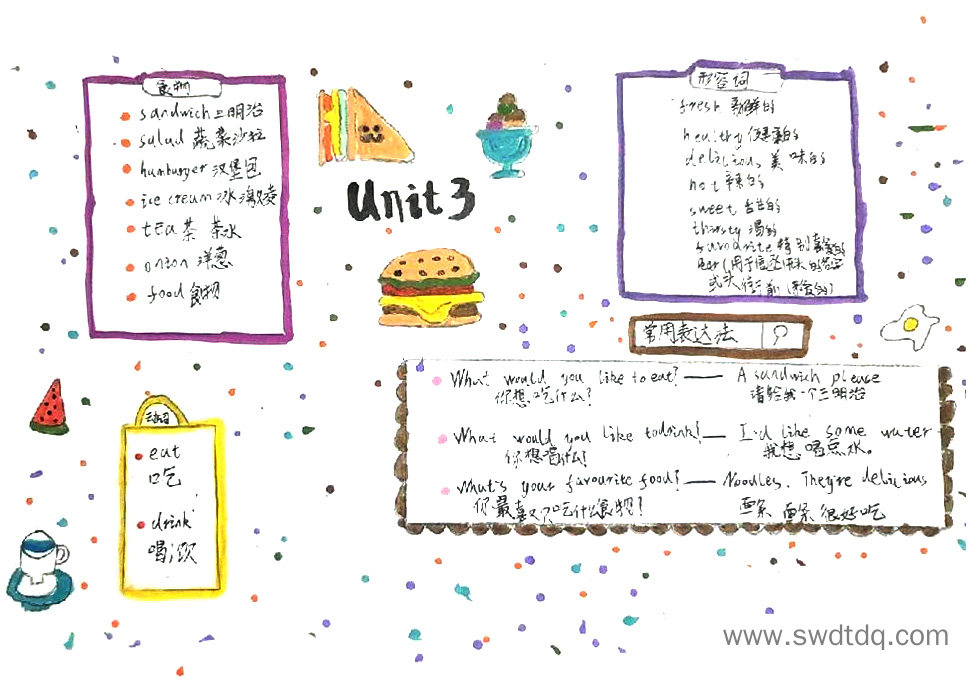 食物
sandwich 三明治
salad 蔬菜沙拉
hamburger 汉堡包
ice cream 冰激凌
tea 茶 茶水
onion 洋葱
food 食物
Unit 3
形容词
fresh 新鲜的
healthy 健康的
delicious 美味的
hot 辣的
sweet 香甜的
thirsty 渴的
favourite 特别喜爱的
Dear (用于信达开头的名字
或头衔前 (亲爱的)
常用表达法
What would you like to eat? — A sandwich please
你想吃什么? 请给我一个三明治
What would you like to drink! — I'd like some water
你想喝什么! 我想喝点水。
What's your favourite food? — Noodles. They're delicious
你最喜欢吃什么食物! 面条 面条很好吃
动词
eat
吃
drink
喝;饮
www.swdtdq.com